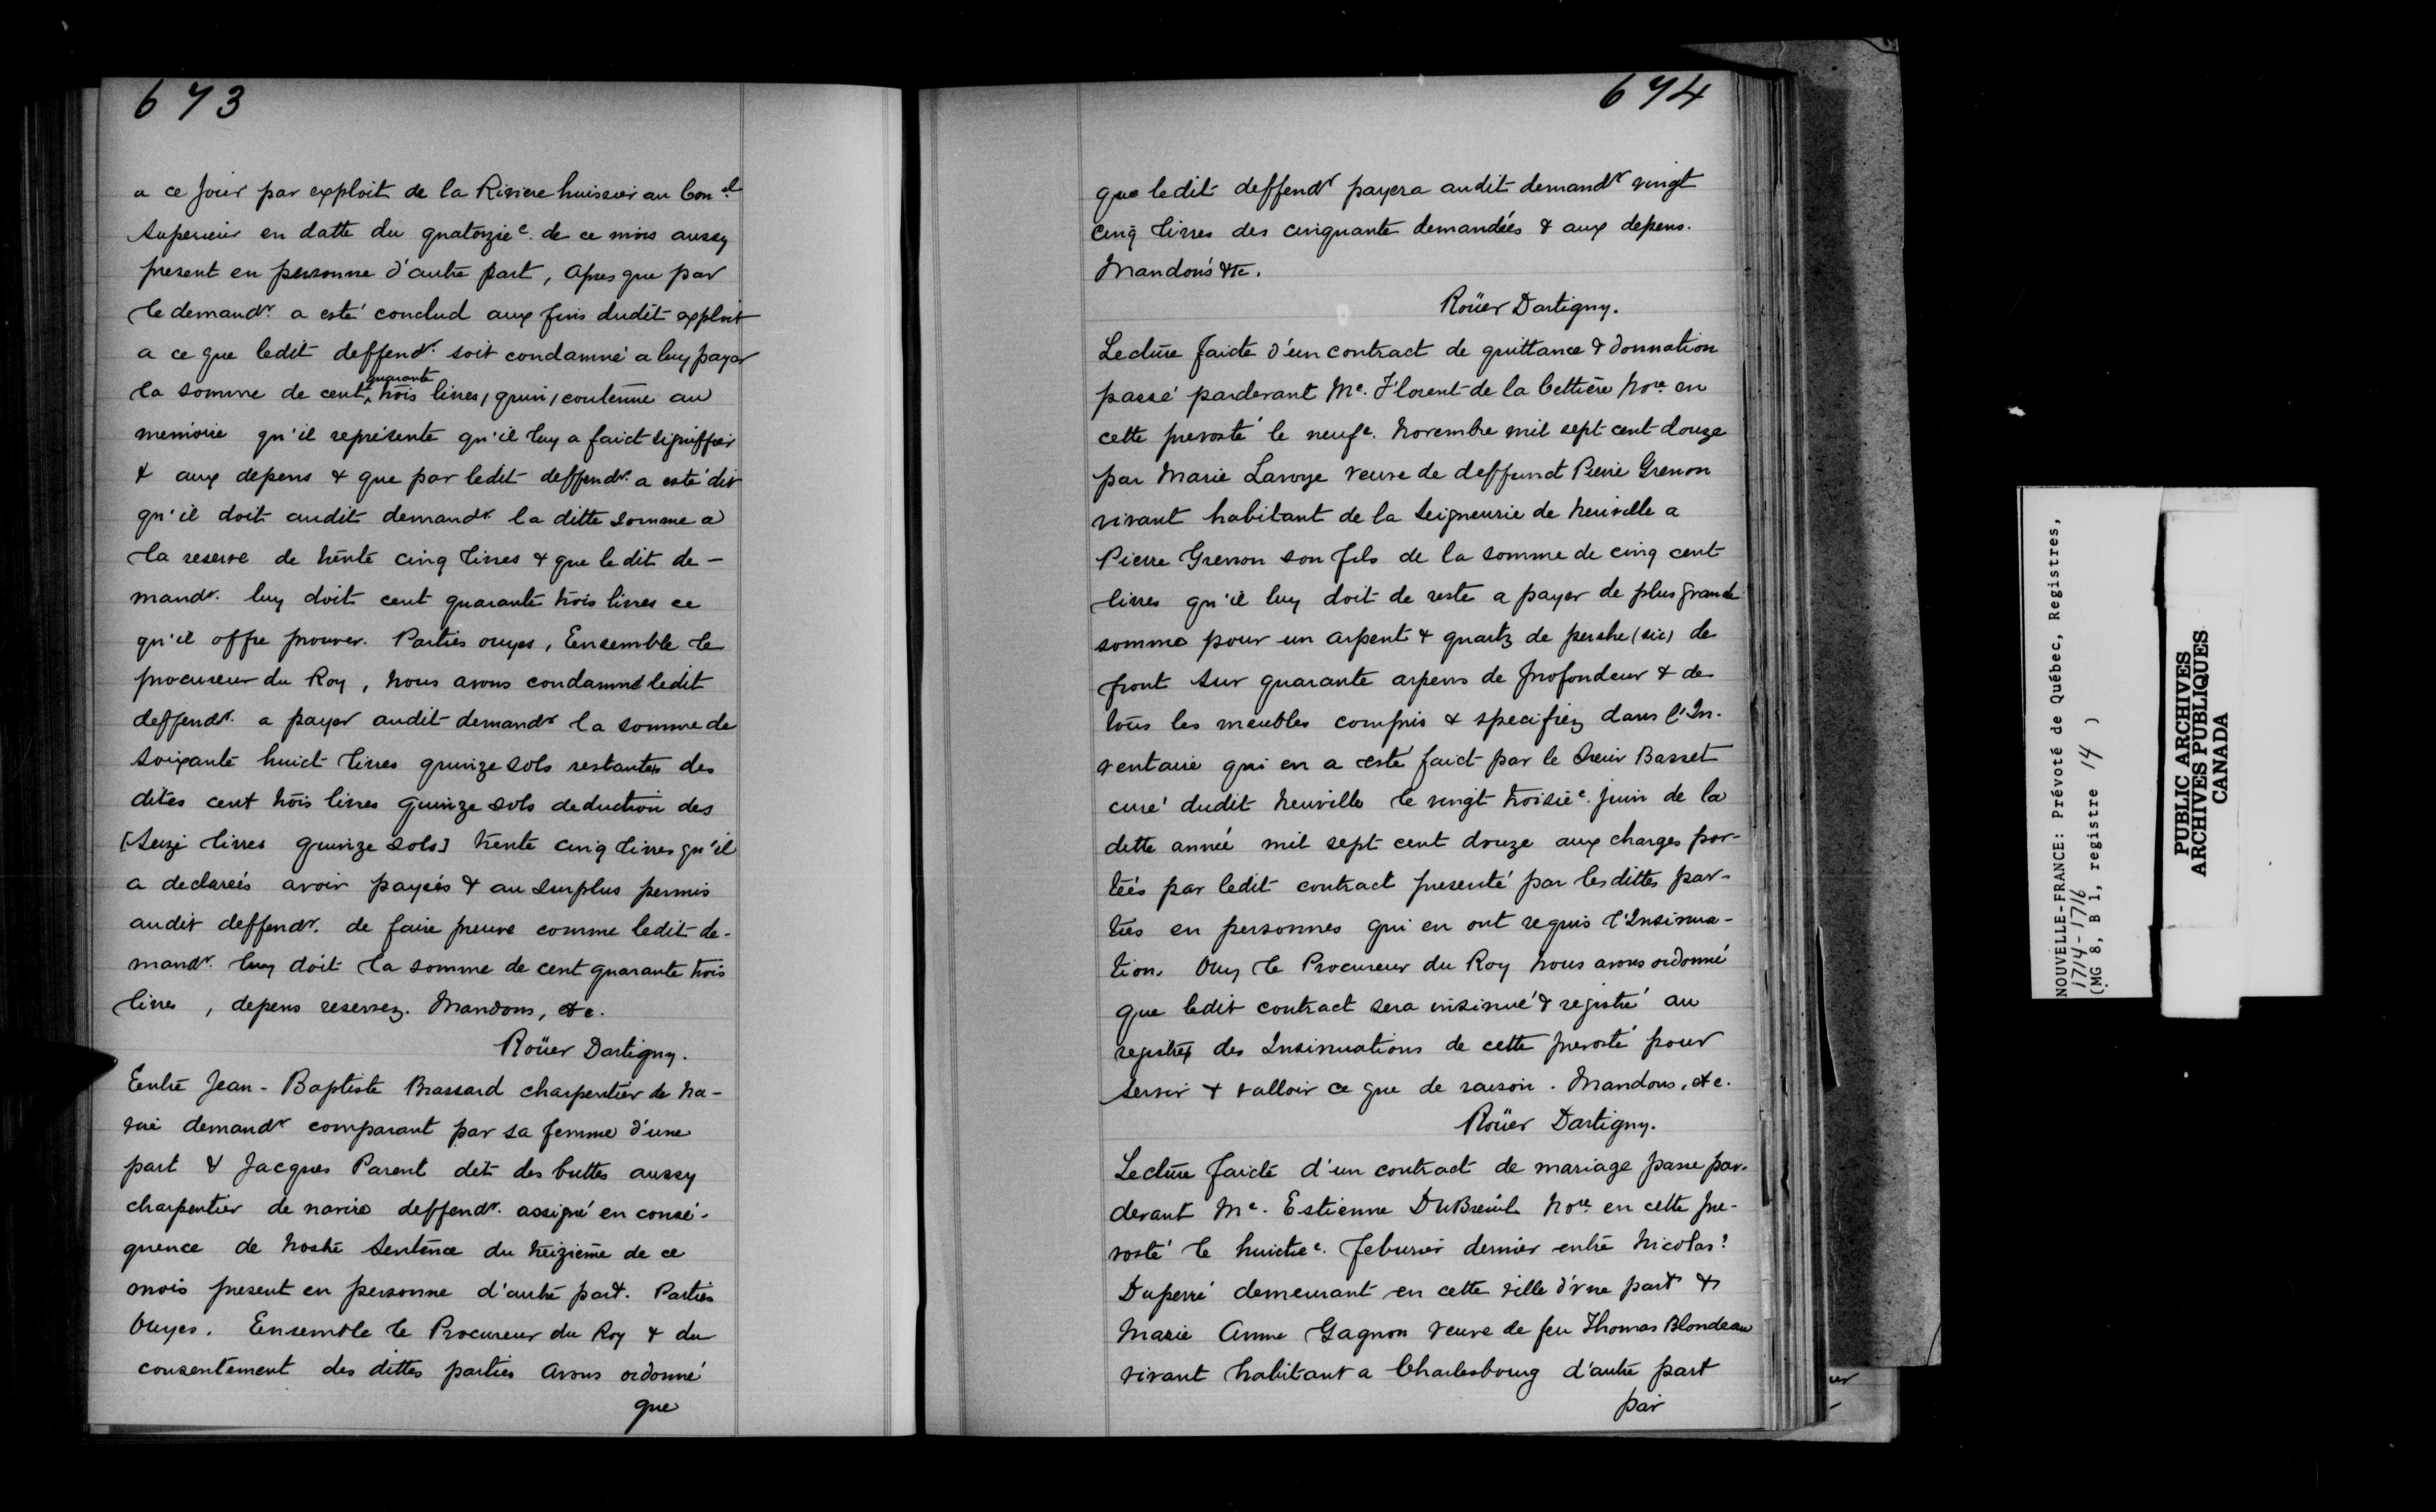 673
a ce Jour par exploit de la Riviere huissier au Con.el
Superieur en datte du quatorzie. de ce mois aussy
present en personne d'autre part, Apres que par
le demandr. a esté conclud aux fins dudit exploit
a ce que ledit deffendr. soit condamné a luy payer
la somme de cent quarante trois livres, contenüe au
memoire qu'il représente qu'il luy a faict signiffier
& aux depens & que par ledit deffendr. a esté dit
qu'il doit audit demandr. la ditte somme a
la reserve de trente cinq livres & que le dit de-
mandr. luy doit cent quarante trois livres ce
qu'il offre prouver. Parties ouyes, Ensemble le
procureur du Roy, nous avons condamné ledit
deffendr. a payer audit demandr la somme de
soixante huict livres quinze sols restantes des
dites cent trois livres quinze sols deduction des
[Seize livres quinze sols] trente cinq livres qu'il
a declareés avoir payeés & au surplus permis
audit deffendr. de faire preuve comme ledit de-
mandr. luy doit la somme de cent quarante trois
livres, depens reservez. Mandons, etc.
Roüer Dartigny.
Entre Jean-Baptiste Brassard charpentier de na-
vire demandr comparant par sa femme d'une
part & Jacques Parent dit des buttes aussy
charpentier de navire deffendr. assigné en consé-
quence de nostre Sentence du treizieme de ce
mois present en personne d'autre part. Parties
Ouyes. Ensemble le Procureur du Roy & du
consentement des dittes parties Avons ordonné
que
674
que ledit deffendr payera audit demandr vingt
Cinq livres des cinquante demandées & aux depens.
Mandons &c.
Roüer Dartigny.
Lecture faicte d'un contract de quittance & donnation
passé pardevant Me. Florent de la Cettière Nore en
cette prevosté le neufe. Novembre mil sept cent douze
par Marie Lavoye veuve de deffunct Pierre Grenon
vivant habitant de la Seigneurie de Neuville a
Pierre Grenon son fils de la somme de cinq cent
livres qu'il luy doit de reste a payer de plus grande
somme pour un arpent & quartz de pershe (sic) de
front sur quarante arpens de profondeur & de
tous les meubles compris & specifiez dans l'In-
ventaire qui en a esté faict par le Sieur Basset
curé dudit Neuville le vingt troisie. Juin de la
dette année mil sept cent douze aux charges por-
teés par ledit contract presenté par lesdittes par-
ties en personnes qui en ont requis l'Insinua-
tion. Ouy le Procureur du Roy Nous avons ordonné
que ledit contract sera insinué & registré au
registre des Insinuations de cette prevosté pour
servir & valloir ce que de raison. Mandons, etc.
Roüer Dartigny.
Lecture faicte d'un contract de mariage passe par-
devant Me. Estienne DuBreuil Nore en cette pre-
vosté le huictie. feburier dernier entre Nicolas?
Duperré demeurant en cette ville d'vne part &
Marie Anne Gagnon veuve de feu Thomas Blondeau
vivant habitant a Charlesbourg d'autre part
par
NOUVELLE-FRANCE: Prévoté de Québec, Registres,
1714-1716
(MG 8, B 1, registre 14 )
PUBLIC ARCHIVES
ARCHIVES PUBLIQUES
CANADA